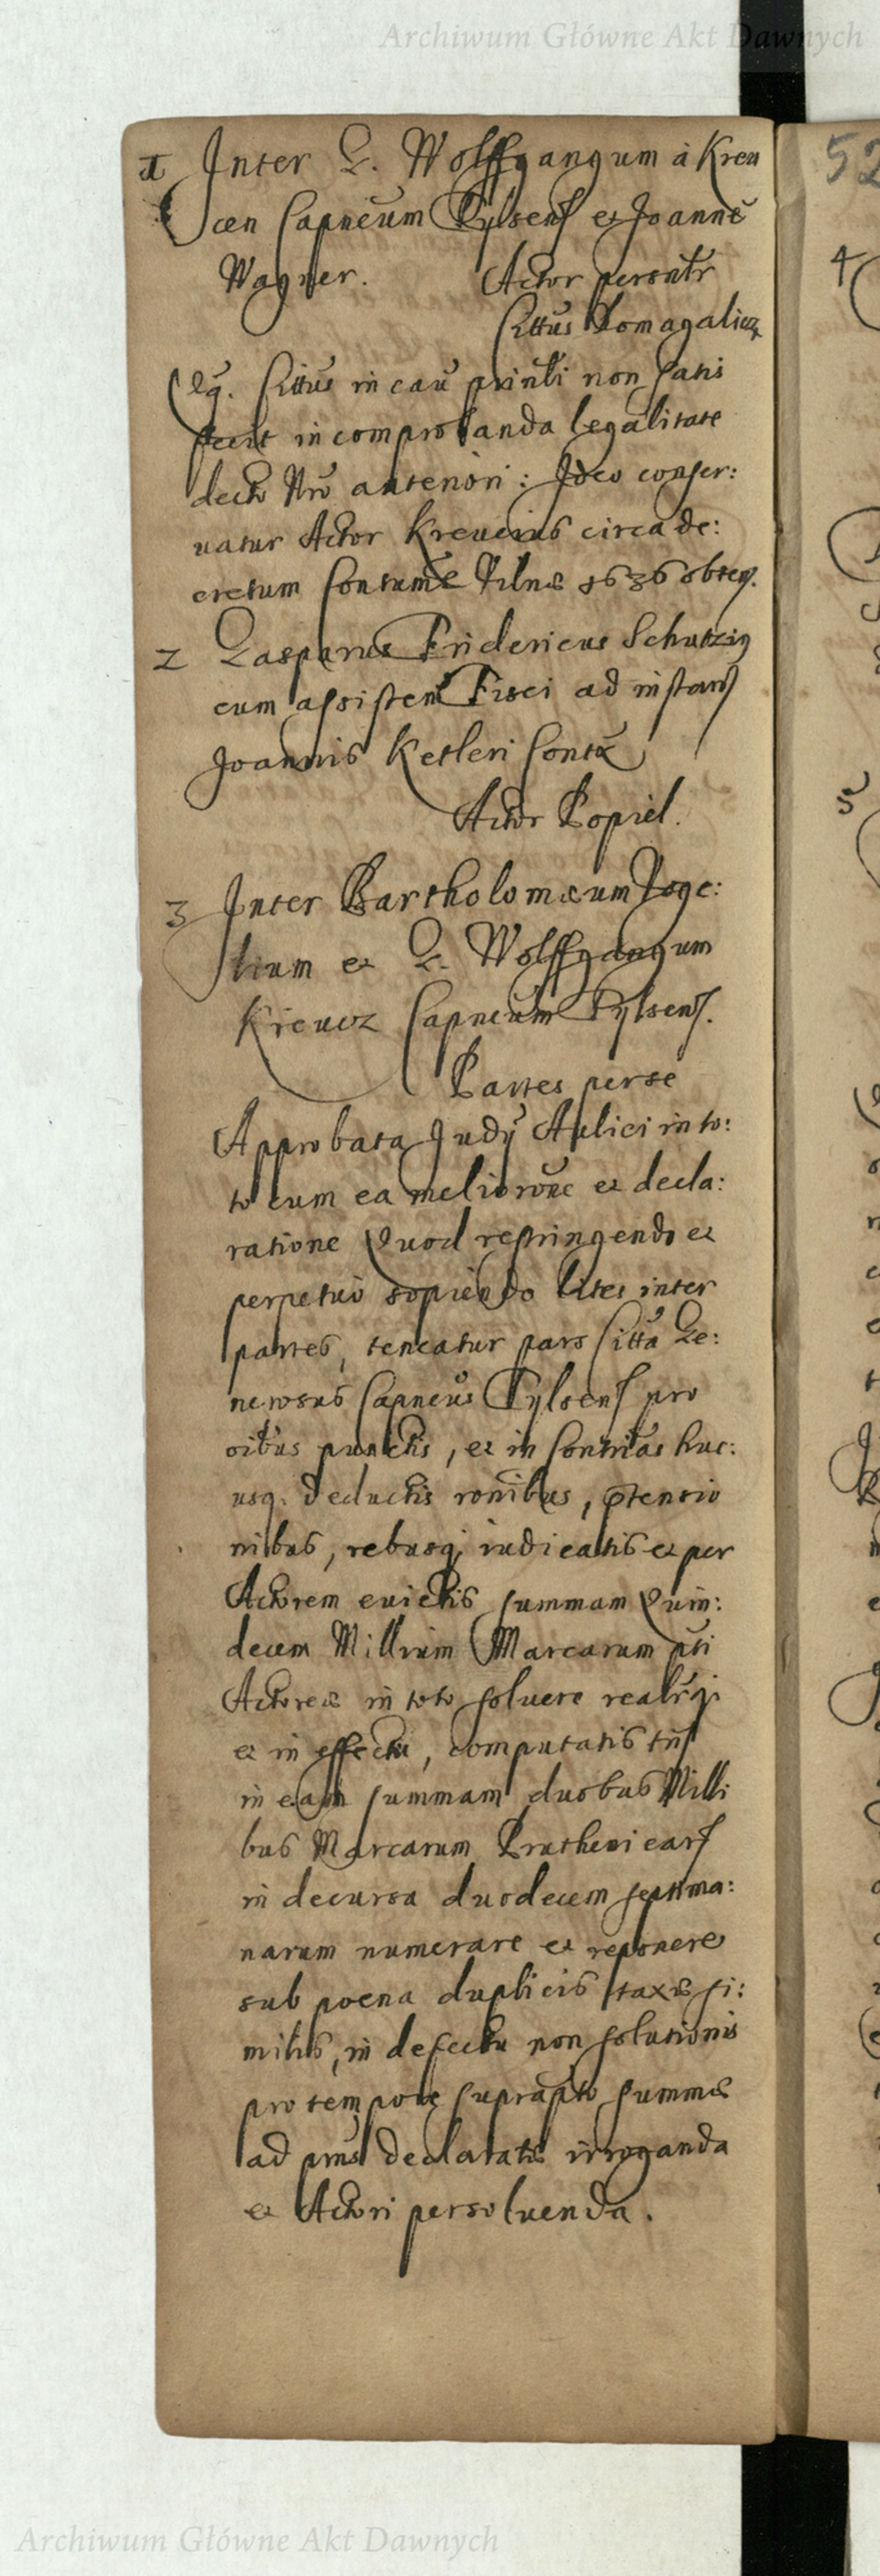 Archiwum Główne Akt Dawnych
52
1 Inter G. Wolffgangum à Kreu
cen Capneum Tylsens et Joanne
Wagner. Actor personlr
Cittus Domagalicz
Qq. Cittus in cau prinli non satis
fecit in comprobanda legalitate
decto Nro anteriori: Ideo conser:
uatur Actor Kreucius circa de:
cretum Contume Vilnæ 1636 obten.
2 Gasparus Fridericus Schutzig
cum assisten Fisci ad instans
Joannis Ketleri Contra
Actor Popiel.
3 Inter Bartholomæum Voge:
lium et G. Wolffgangum
Kreucz Capneum Tylsens.
Partes per se
Approbata Judy Aulici in to:
to cum ea meliorone et decla:
ratione Quod restringendo et
perpetuo sopiendo lites inter
partes, teneatur pars Citta Ge:
nerosus Capneus Tylsens pro
oibus punctis, et in Contritas huc:
usq. deductis ronibus, ptensio
nibus, rebusq; iudicatis et per
Actorem euictis summam Quin:
decem Millium Marcarum pti
Actoreæ in toto soluere realrqi
et in effectu, computatis tn
in eam summam duobus Milli
bus Marcarum Pruthenicars
in decursu duodecem septima:
narum numerare et reponere
sub poena duplicis taxæ si:
milis, in defectu non solutionis
pro tempore suprapto summæ
ad pms declaratæ irroganda
et Actori persoluenda.
4
5
Archiwum Główne Akt Dawnych